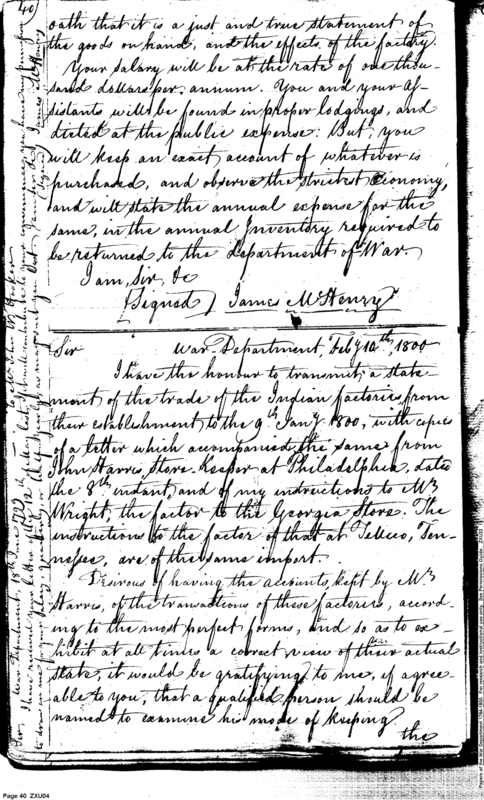 40
oath that it is a just and true statement of
the goods on hand, and the effects of the factory.
Your salary will be at the rate of one thou-
sand dollars per, annum. You and your As-
sistants will be found in proper lodgings, and
dieted at the public expense: But, you
will keep an exact account of whatever is
purchased, and observe the strictest economy,
and will state the annual expense for the
same, in the annual Inventory required to
be returned to the department of War.
I am, Sir, &c
(Signed) James McHenry
Sir War Department, Feby 10th, 1800
I have the honour to transmit, a state
ment, of the trade of the Indian factories from
their establishment, to the 9th Jany 1800, with copies
of a letter which accompanied the same from
John Harris, Store Keeper at Philadelphia, dated
the 8th instant, and of my instructions to Mr
Wright, the factor to the Georgia Store. The
instructions to the factor of that at Tellico, Ten-
nessee, are of the same import.
Desirous of having the accounts, kept by Mr
Harris, of the transactions of these factories, accord-
ing to the most perfect forms, and so as to ex
hibit at all times a correct view of their actual
state, it would be gratifying to me, if agree-
able to you, that a qualified person should be
named to examine his mode of keeping
the
Sir, War Department, 18th June 1799
James McHenry
Page 40 ZXU04